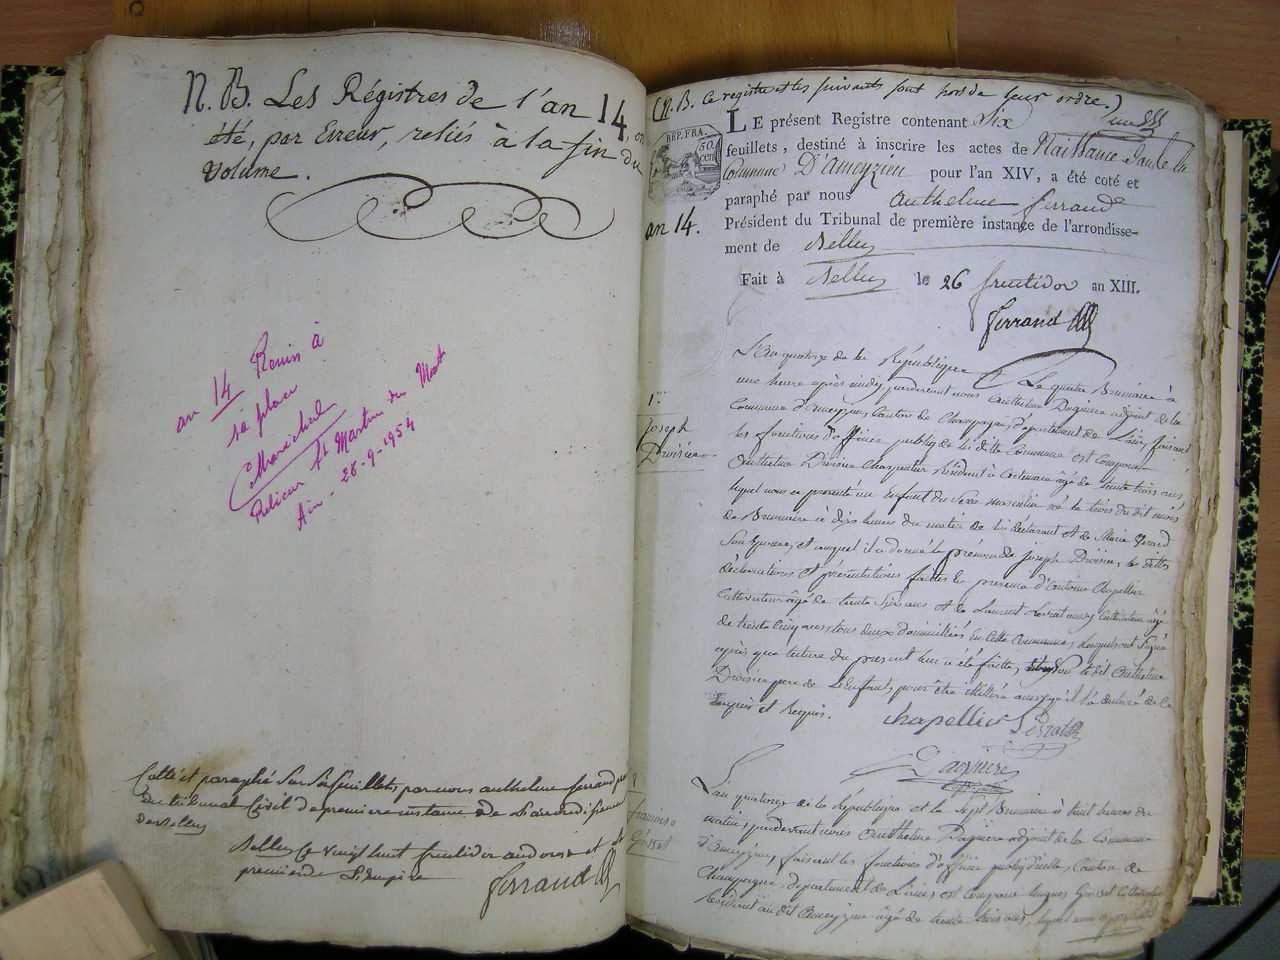 N.B. Les Régistres de l'an 14, on
été, par Erreur, reliés à la fin du
Volume.
an 14 Remis à
sa place
Maréchal
Relieur St Martin du Mont
Ain - 28-9-1954
Cotté et paraphé Sur Six feuillets, par nous anthelme ferrand
du tribunal Civil de premiere instance de L'arrondissement
de Belley
Belley Ce vingt huit fructidor an douze et
premier de L'Empire
ferrand
(N.B. Ce registre et les suivants sont hors de leur ordre.)
REP. FRA.
50
cent
LE présent Registre contenant Six
feuillets, destiné à inscrire les actes de Naissance dans la
Commune D'ameyzieu pour l'an XIV, a été coté et
paraphé par nous anthelme ferrand
an 14.
Président du Tribunal de première instance de l'arrondisse-
ment de Belley
Fait à Belley le 26 fructidor an XIII.
ferrand
1er
Joseph
Drivieu
L'an quatorze de la République Le quatre Brumaire à
une heure après midy, pardevant nous Anthelme Dagniere adjoint de la
Commune d'ameyzieu, Canton de Champagne, département de L'ain, faisant
les fonctions d'officier public de la ditte Commune est Comparu
Charpentier Résident à âgé de trente trois ans,
lequel nous a présenté un Enfant du Sexe masculin né le trois du dit mois
de Brumaire à dix heures du matin de lui déclarant et de Marie
Son Epouse, et auquel il a donné le prénom de Joseph les dittes
déclarations et présentations faittes En presence d'Antoine Chapellier
Cultivateur âgé de trente ans et de Laurent aussy Cultivateur âgé
de trente Cinq ans, tous deux domiciliés en Cette Commune, lesquels ont Signé
après que lecture du present leur a été faitte, non le dit Anthelme
pere de L'enfant, pour être illitéré ainsy qu'il l'a déclaré de ce
Enquis et Requis.
Chapellier
Dagniere
2
francois
L'an quatorze de la République et le Sept Brumaire à huit heures du
matin, pardevant nous Anthelme Dagniere adjoint de la Commune
d'Ameyzieu, faisant les fonctions d'officier public d'icelle, Canton de
Champagne, département de L'ain est Comparu
Résident au dit Ameyzieu âgé de trente trois ans, lequel nous a présenté